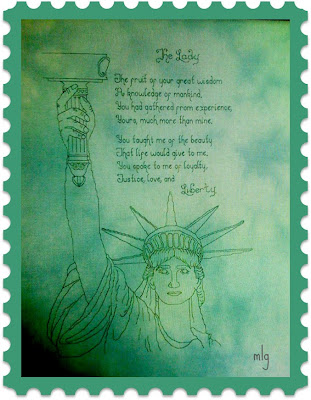 The Lady
The fruit of your great wisdom
Is knowledge of mankind,
You had gathered from experience,
Yours, much more than mine.
You taught me of the beauty
That life would give to me,
You spoke to me of loyalty,
Justice, love, and
Liberty
mlg